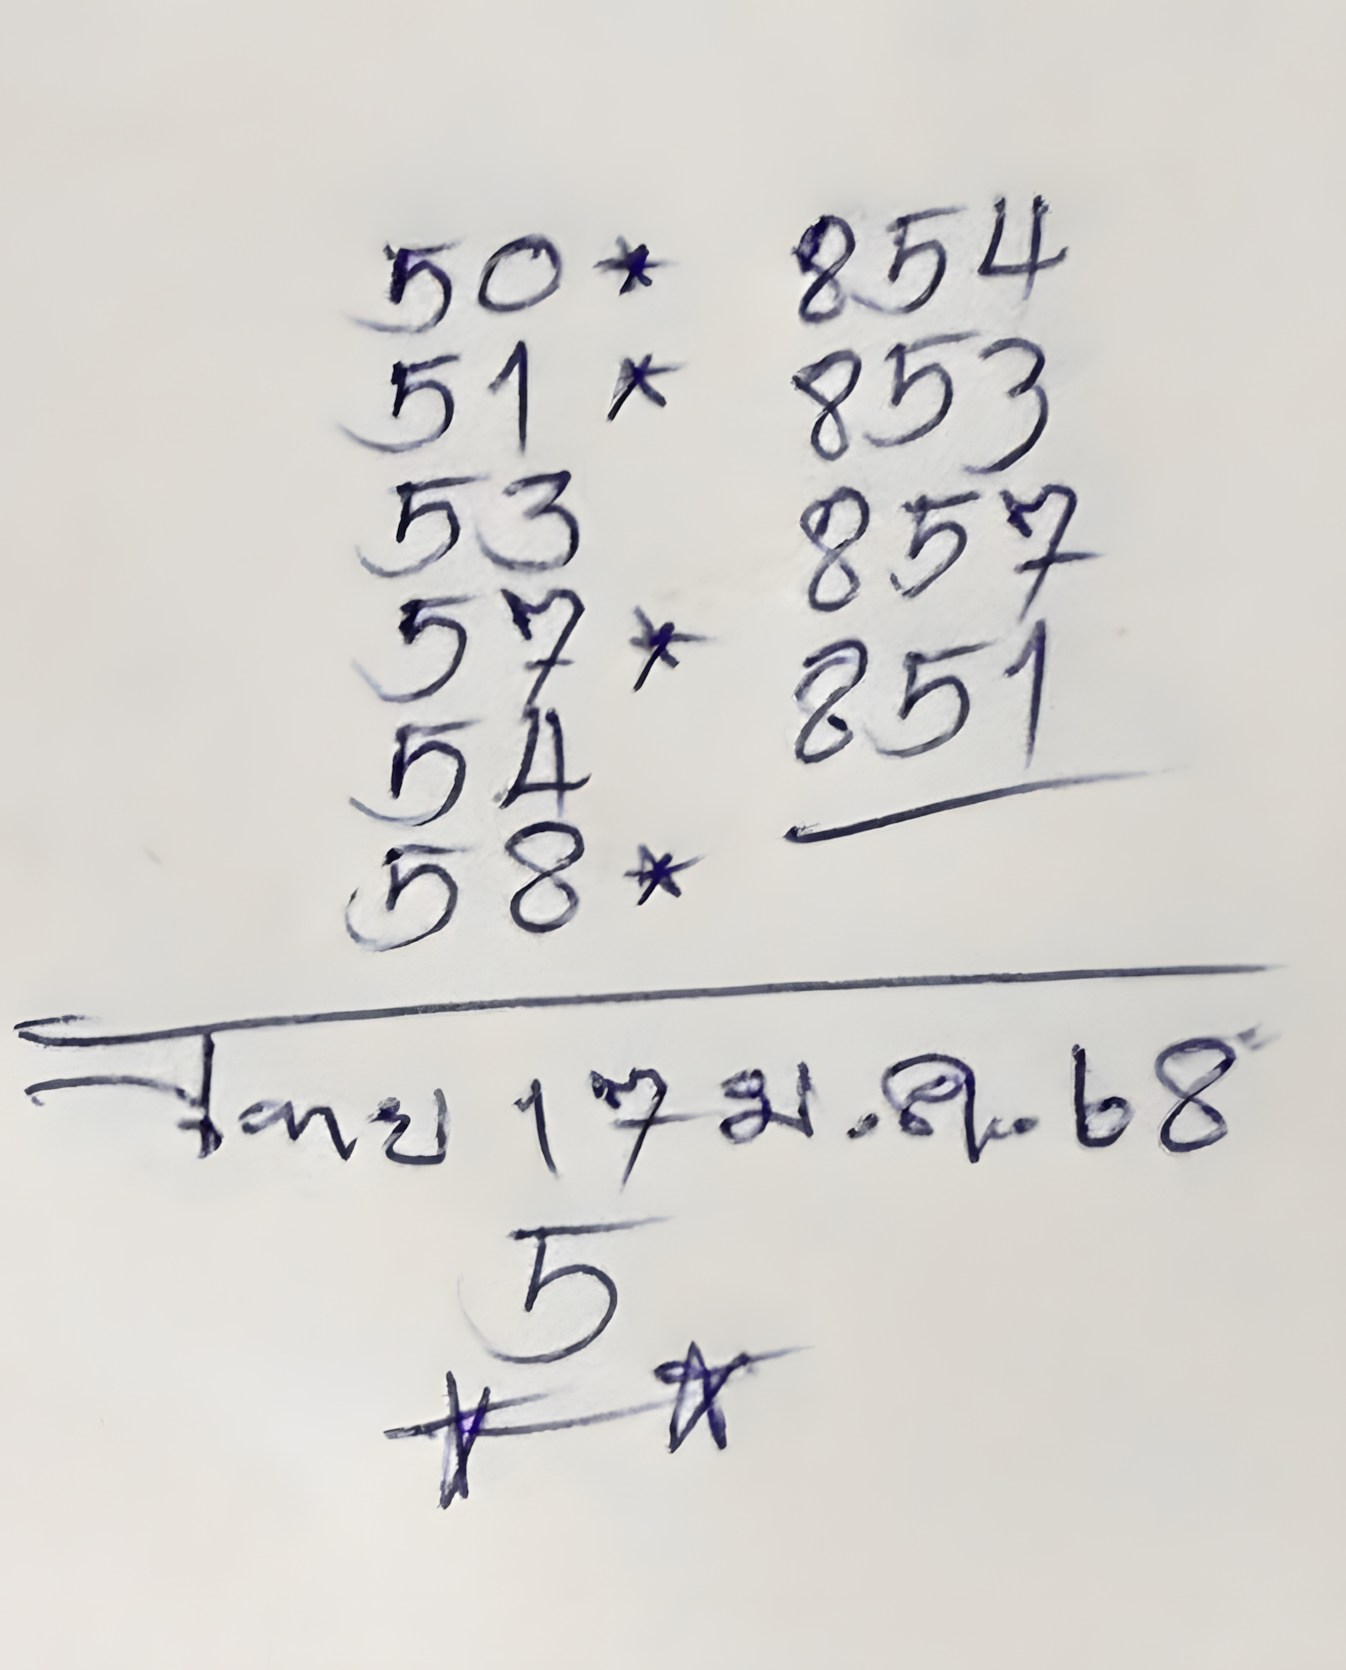 50* 854
51* 853
53 857
57* 851
54
58*
ไทย 17 ม.ค. 68
5
* *